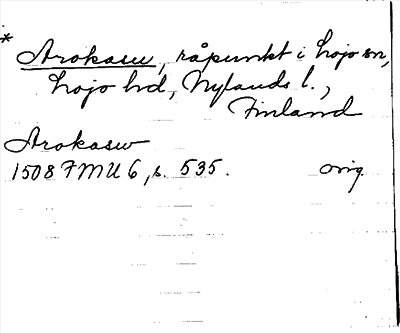 * Arokasuu, råpunkt i Lojo sn,
Lojo hd, Nylands l.,
Finland
Arokasuu
1508 FMU 6, s. 535. orig.